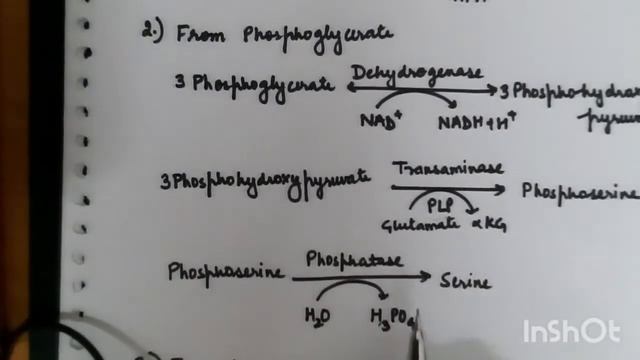 2.) From Phosphoglycerate
3 Phosphoglycerate Dehydrogenase 3 Phosphohydrox
NAD+ NADH + H+ pyruv
3 Phosphohydroxy pyruvate Transaminase Phosphoserine
PLP
Glutamate αKG
Phosphoserine Phosphatase Serine
H2O H3PO4
InShOt